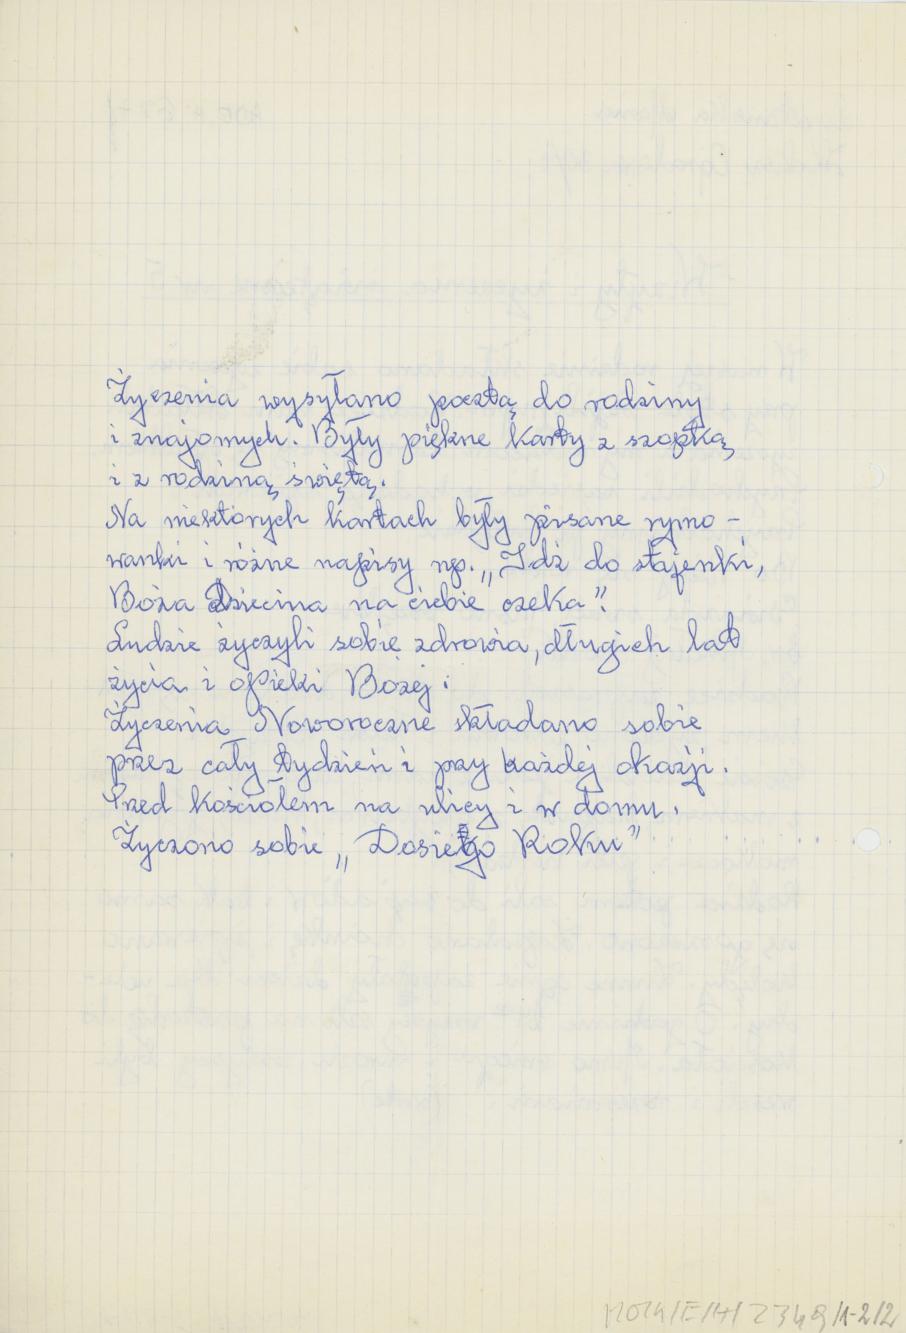 Życzenia wysyłano pocztą do rodziny
i znajomych. Były piękne karty z szopką
i z rodziną świętą.
Na niektórych kartach były pisane rymo-
wanki i różne napisy np. „Idź do stajenki,
Boża Dziecina na ciebie czeka".
Ludzie życzyli sobie zdrowia, długich lat
życia i opieki Bożej.
Życzenia Noworoczne składano sobie
przez cały tydzień i przy każdej okazji.
Przed kościołem na ulicy i w domu.
Życzono sobie „Dosiego Roku"